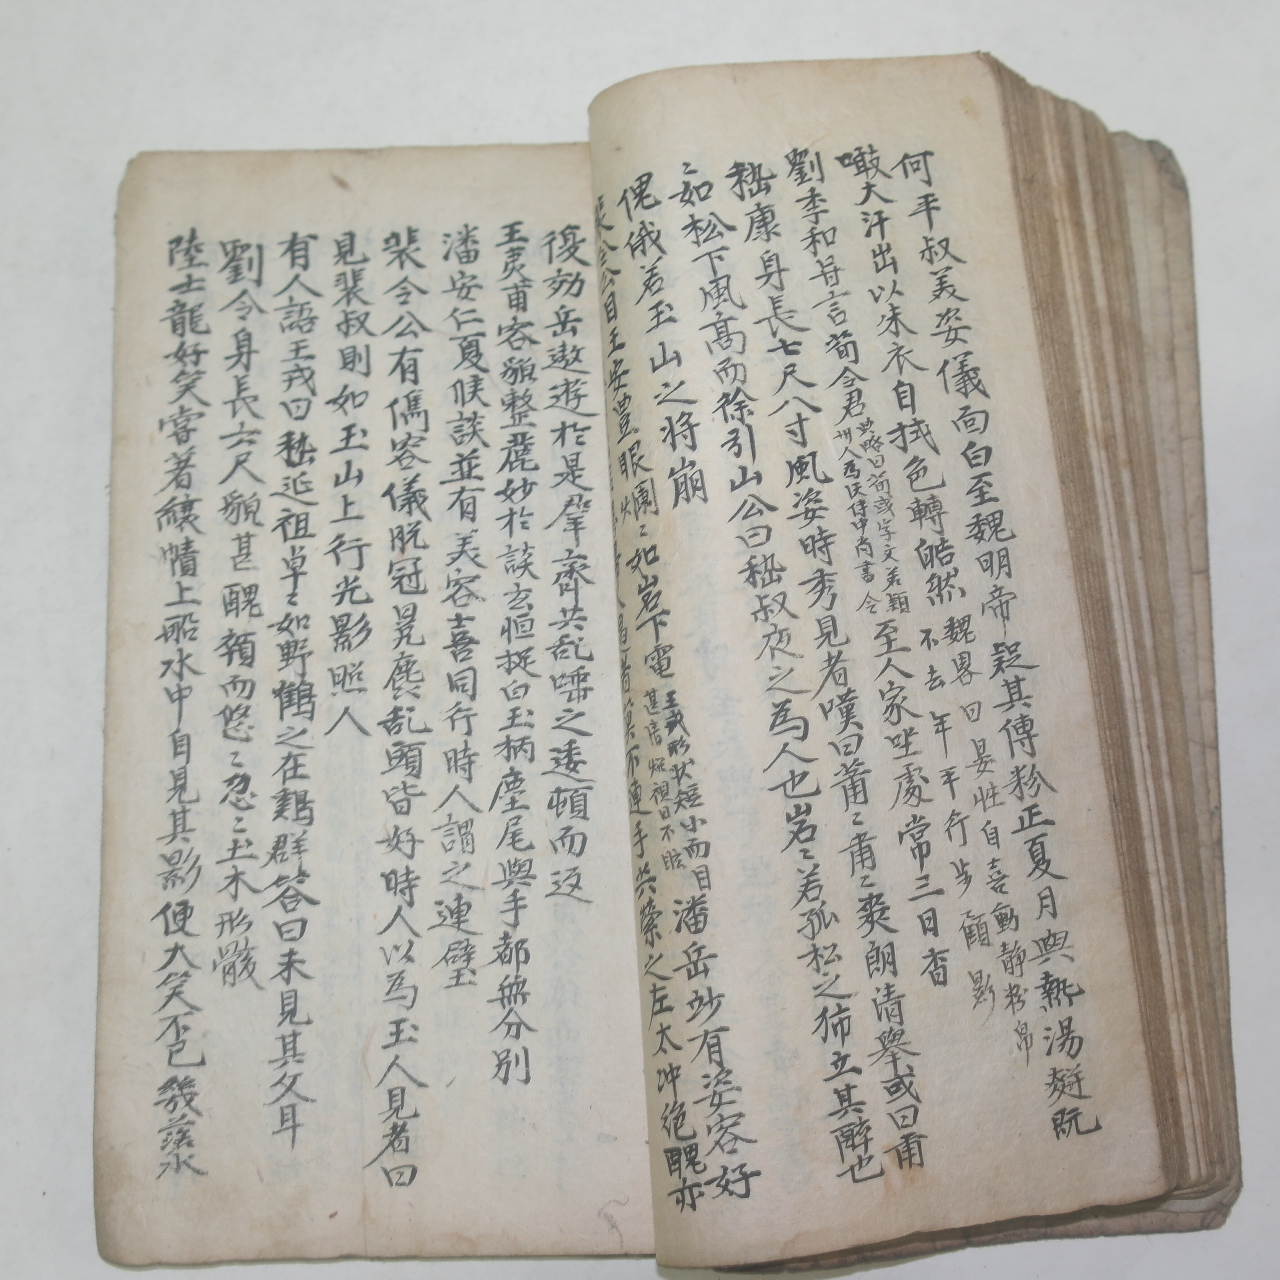 何平叔美姿儀面白至魏明帝疑其傅粉正夏月與熱湯麪既
噉大汗出以朱衣自拭色轉皓然
魏畧曰晏性自喜動靜粉帛
不去手行步顧影
劉季和每言荀令君
典略曰荀彧字文若潁
川人為漢侍中尚書令
至人家坐處常三日香
嵇康身長七尺八寸風姿時秀見者嘆曰蕭〻肅〻爽朗清舉或曰肅
〻如松下風高而徐引山公曰嵇叔夜之為人也岩〻若孤松之獨立其醉也
傀俄若玉山之將崩
裴令公目王安豊眼爛〻如岩下電
王戎形狀短小而目
甚清炤視日不眩
潘岳妙有姿容好
連手共縈之左太冲絶醜亦
復効岳遨遊於是羣嫗齊共乱唾之逶頓而返
王夷甫容貌整麗妙於談玄恒捉白玉柄麈尾與手都無分別
潘安仁夏侯諶並有美容喜同行時人謂之連璧
裴令公有儁容儀脫冠冕麄服乱頭皆好時人以為玉人見者曰
見裴叔則如玉山上行光影照人
有人語王戎曰嵇延祖卓〻如野鶴之在鷄群答曰未見其父耳
劉令身長六尺貌甚醜頦而悠〻忽〻土木形骸
陸士龍好笑嘗著縗幘上船水中自見其影便大笑不已幾落水